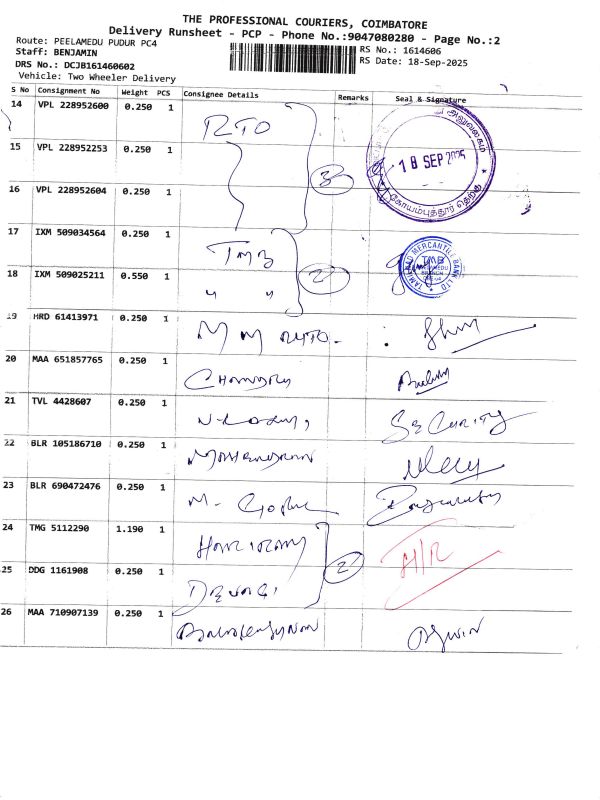 THE PROFESSIONAL COURIERS, COIMBATORE
Delivery Runsheet - PCP - Phone No.:9047080280 - Page No.:2
Route: PEELAMEDU PUDUR PC4
RS No.: 1614606
Staff: BENJAMIN
RS Date: 18-Sep-2025
DRS No.: DCJB161460602
Vehicle: Two Wheeler Delivery
S No Consignment No Weight PCS Consignee Details Remarks Seal & Signature
14 VPL 228952600 0.250 1 RTO
18 SEP 2025
15 VPL 228952253 0.250 1
3
16 VPL 228952604 0.250 1
கோயம்புத்தூர் தெற்கு
17 IXM 509034564 0.250 1 TMB
TAMILNAD MERCANTILE BANK LTD
TMB
18 IXM 509025211 0.550 1 " "
2
19 HRD 61413971 0.250 1
20 MAA 651857765 0.250 1
21 TVL 4428607 0.250 1 SECURITY
22 BLR 105186710 0.250 1
23 BLR 690472476 0.250 1
24 TMG 5112290 1.190 1
H/R
2
25 DDG 1161908 0.250 1
26 MAA 710907139 0.250 1